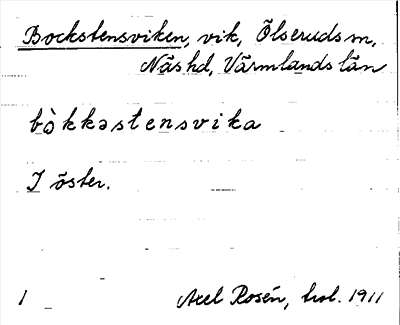 Bockstensviken, vik, Ölseruds sn,
Näs hd, Värmlands län
bòkkəstensvika
I öster.
1 Axel Rosén, hrl. 1911